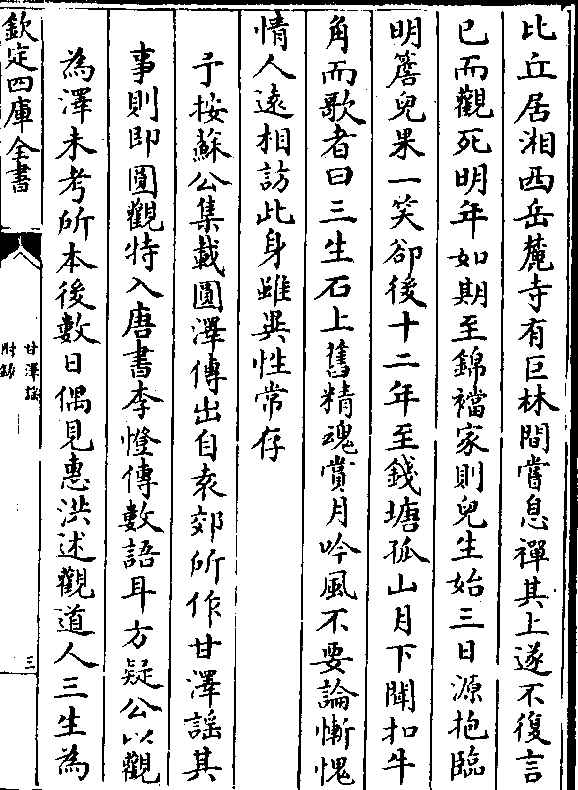 比丘居湘西岳麓寺有巨林間嘗息禪其上遂不復言
已而觀死明年如期至錦襠家則兒生始三日源抱臨
明簷兒果一笑卻後十二年至錢塘孤山月下聞扣牛
角而歌者曰三生石上舊精魂賞月吟風不要論慚愧
情人遠相訪此身雖異性常存
予按蘇公集載圓澤傳出自袁郊所作甘澤謡其
事則即圓觀特入唐書李憕傳數語耳方疑公以觀
為澤未考所本後數日偶見惠洪述觀道人三生為
欽定四庫全書
甘澤謡
附錄
三